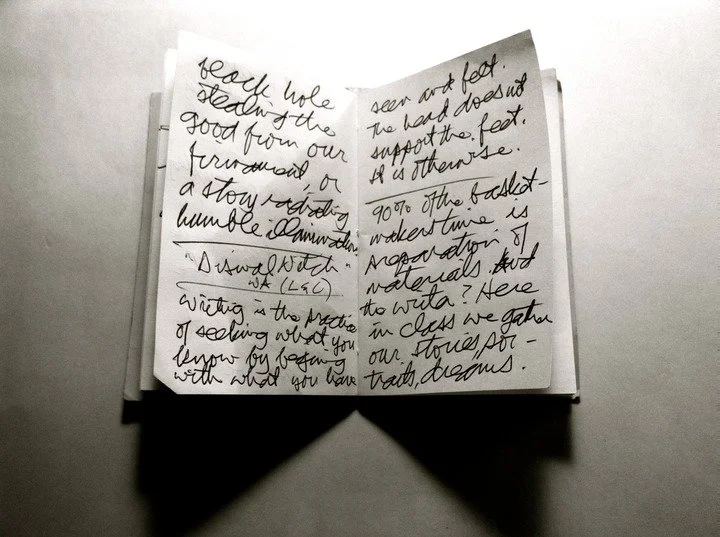 black hole
stealing the
good from our
firmament, or
a story radiating
humble illumination
"Dismal Nitch"
WA (L&C)
Writing is the practice
of seeking what you
know by begining
with what you have
seen and felt.
The head does not
support the feet.
It is otherwise.
90% of the basket-
makers time is
preparation of
materials. And
the writer? Here
in class we gather
our stories, por-
traits, dreams.